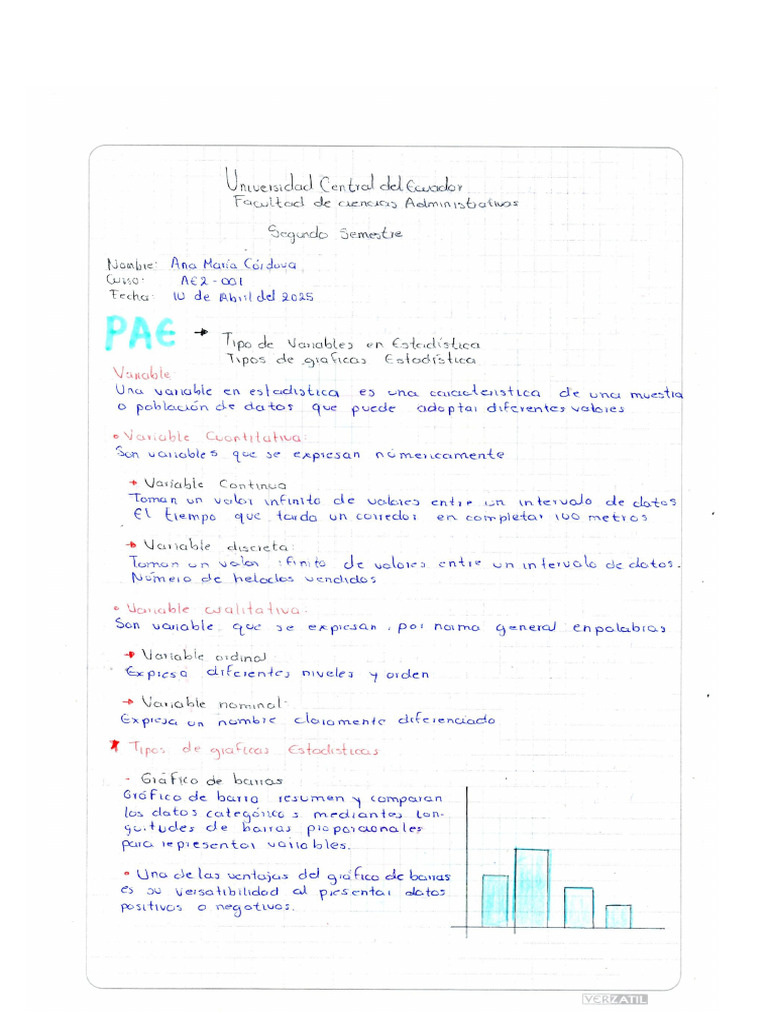 Universidad Central del Ecuador
Facultad de ciencias Administrativas
Segundo Semestre
Nombre: Ana María Córdova
Curso: AE2-001
Fecha: 10 de Abril del 2025
PAE → Tipo de Variables en Estadística
Tipos de graficas Estadística
Variable
Una variable en estadistica es una caracteristica de una muestra
o población de datos que puede adoptar diferentes valores
• Variable Cuantitativa:
Son variables que se expresan númericamente
→ Variable Continua
Toman un valor infinito de valores entre un intervalo de datos
El tiempo que tarda un corredor en completar 100 metros
→ Variable discreta:
Toman un valor finito de valores entre un intervalo de datos.
Número de helados vendidos
• Variable cualitativa.
Son variable que se expresan, por norma general en palabras
→ Variable ordinal
Expresa diferentes niveles y orden
→ Variable nominal.
Expresa un nombre claramente diferenciado
* Tipos de graficas Estadisticas
- Gráfico de barras
Gráfico de barra resumen y comparan
los datos categóricos mediantes lon-
guitudes de barras proporcionales
para representar variables.
• Una de las ventajas del gráfico de barras
es su versatibilidad al presentar datos
positivos o negativos.
VERZATIL